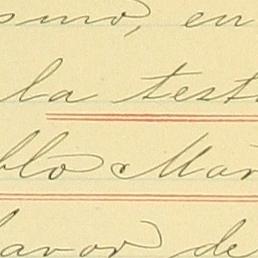 smo, en
la test
blo Mar
favor de